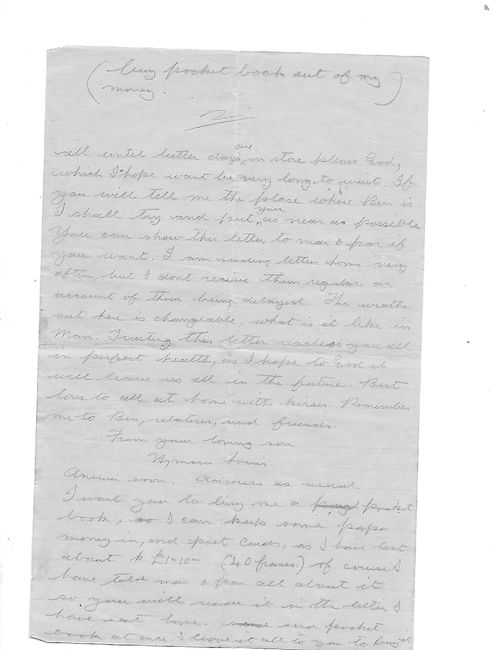 (buy pocket book out of my
money.)
2
all until better days, are in store please God,
which I hope wont be very long to wait. If
you will tell me the place where Ben is
I shall try and put you as near as possible
You can show this letter to ma & par if
you want. I am sending letter home very
often, but I dont receive them regular on
account of them being delayed. The weather
out here is changeable, what is it like in
Man. Trusting this letter reaches you all
in perfect health, as I hope to God it
will leave us all in the future. Best
love to all at home with kisses. Remember
me to Ben, relatives, and friends.
From your loving son
Hyman
Answer soon. Address as usual.
I want you to buy me a pocket
book, so I can keep some paper
money in, and post cards, as I have lost
about £1-10- (40 francs) of course I
have told ma & par all about it
so you will in the letter I
have sent home. send pocket
book at once I leave it all to you to buy